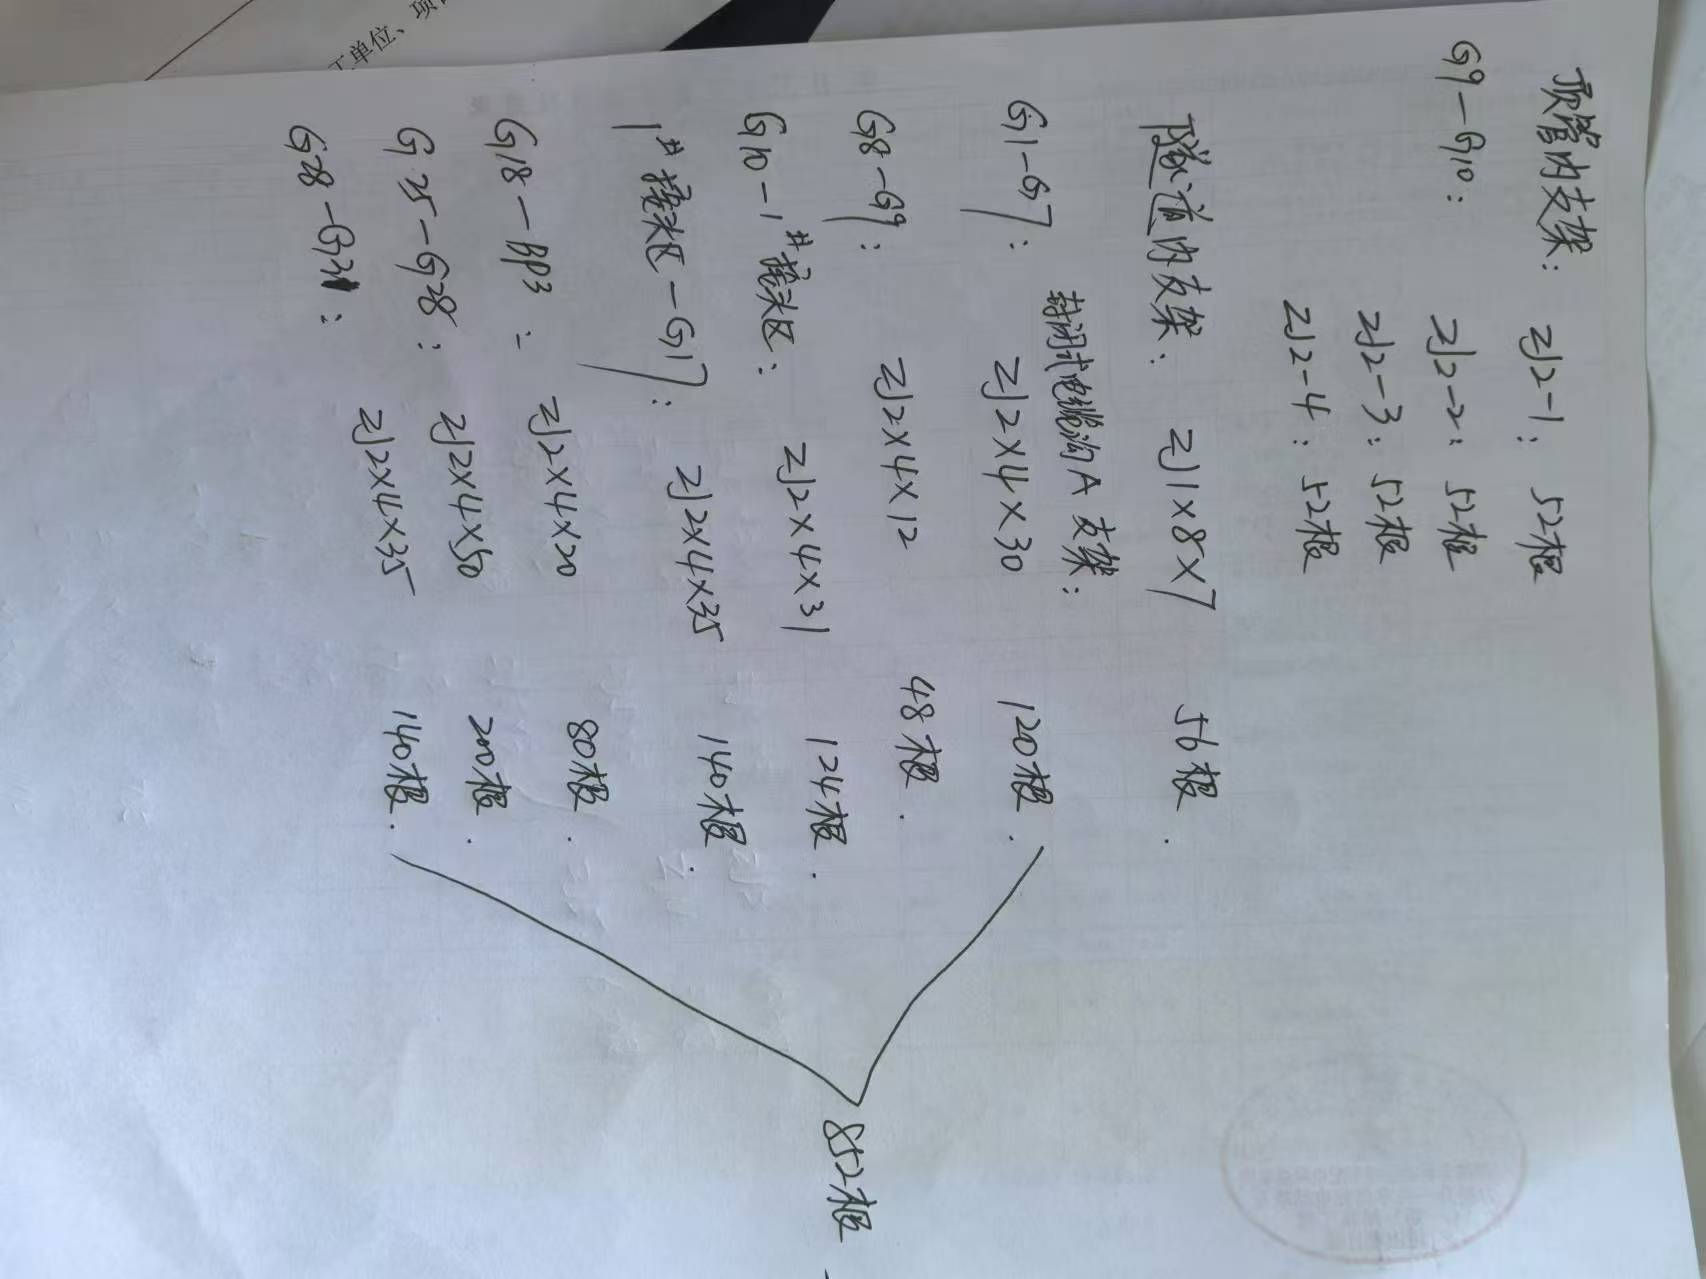 工单位、项
顶管内支架: ZJ2-1: 52根
G9-G10: ZJ2-2: 52根
ZJ2-3: 52根
ZJ2-4: 52根
隧道内支架: ZJ1×8×7 56根.
封闭式电缆沟A支架:
G1-G7: ZJ2×4×30 120根.
G8-G9: ZJ2×4×12 48根.
G10-1#接头区: ZJ2×4×31 124根.
1#接头区-G17: ZJ2×4×35 140根.
G18-BP3: ZJ2×4×20 80根.
G25-G28: ZJ2×4×50 200根.
G28-G31: ZJ2×4×35 140根.
852根